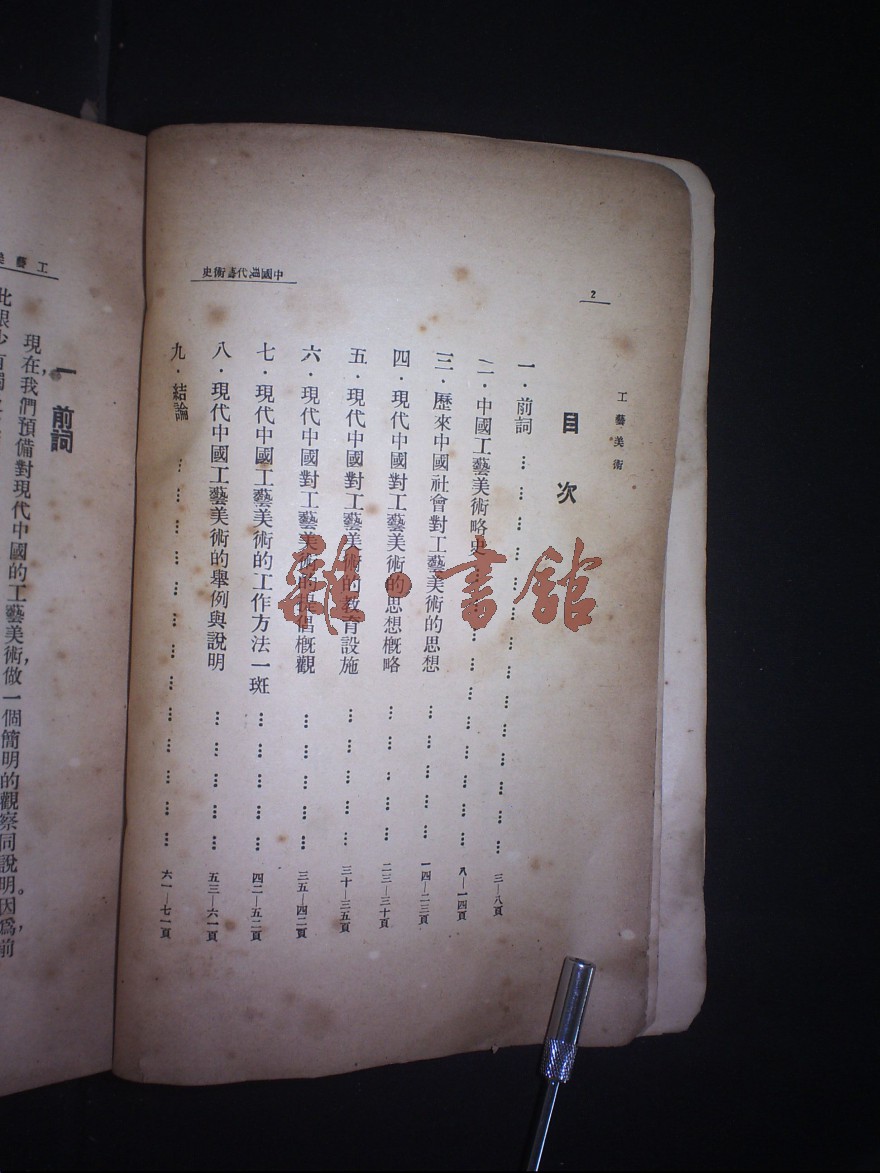 2
中國現代藝術史
工藝美術
目次
一・前詞………………………………三—八頁
二・中國工藝美術略史………………八—一四頁
三・歷來中國社會對工藝美術的思想…………一四—二三頁
四・現代中國對工藝美術的思想概略…………二三—三十頁
五・現代中國對工藝美術的教育設施…………三十—三五頁
六・現代中國對工藝美術的提倡概觀…………三五—四二頁
七・現代中國工藝美術的工作方法一斑…………四二—五二頁
八・現代中國工藝美術的舉例與說明…………五三—六一頁
九・結論………………………………六一—七一頁
雜・書館
工藝
一 前詞
現在,我們預備對現代中國的工藝美術,做一個簡明的觀察同說明。因爲,前
此很少有